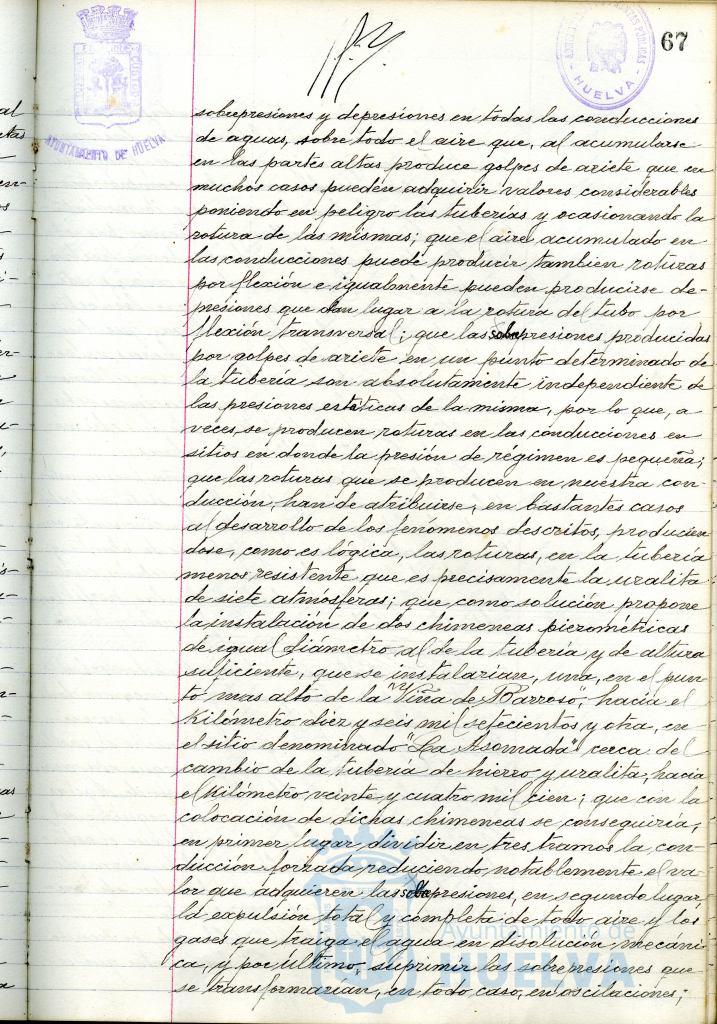 67
AYUNTAMIENTO DE HUELVA
HUELVA
sobrepresiones y depresiones en todas las conducciones
de aguas, sobre todo el aire que, al acumularse
en las partes altas produce golpes de ariete que en
muchos casos pueden adquirir valores considerables
poniendo en peligro las tuberias y ocasionando la
rotura de las mismas; que el aire acumulado en
las conducciones puede producir tambien roturas
por flexión e igualmente pueden producirse de-
presiones que dan lugar a la rotura del tubo por
flexión transversal; que las sobrepresiones producidas
por golpes de ariete en un punto determinado de
la tubería son absolutamente independiente de
las presiones estáticas de la misma, por lo que, a
veces, se producen roturas en las conducciones en
sitios en donde la presión de régimen es pequeña;
que las roturas que se producen en nuestra con-
ducción, han de atribuirse, en bastantes casos
al desarrollo de los fenómenos descritos, producien
dose, como es lógica, las roturas, en la tubería
menos resistente que es precisamente la uralita
de siete atmósferas; que como solución propone
la instalación de dos chimeneas piezométricas
de igual diámetro al de la tubería y de altura
suficiente, que se instalarían, una, en el pun-
to mas alto de la "Viña de Barroso", hacia el
Kilómetro diez y seis mil setecientos y otra, en
el sitio denominado "La Asomada" cerca del
cambio de la tubería de hierro y uralita, hacia
el Kilómetro veinte y cuatro mil cien; que con la
colocación de dichas chimeneas se conseguiría,
en primer lugar, dividir en tres tramos la con-
ducción forzada reduciendo notablemente el va-
lor que adquieren las sobrepresiones, en segundo lugar,
la expulsión total y completa de todo aire y los
gases que traiga el agua en disolución mecani
ca, y por último, suprimir las sobrepresiones que
se transformarían, en todo caso, en oscilaciones;
Ayuntamiento de
HUELVA